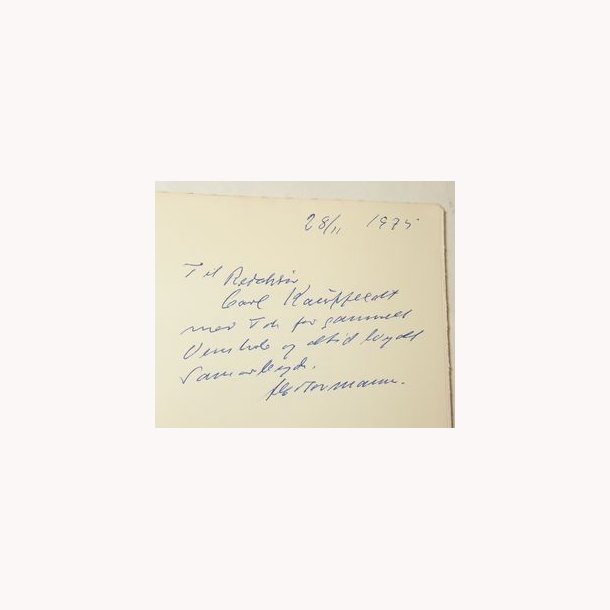 28/11 1975
Til Rektor
Carl
med Tak for gammelt
Venskab og altid loyalt
Samarbejde.